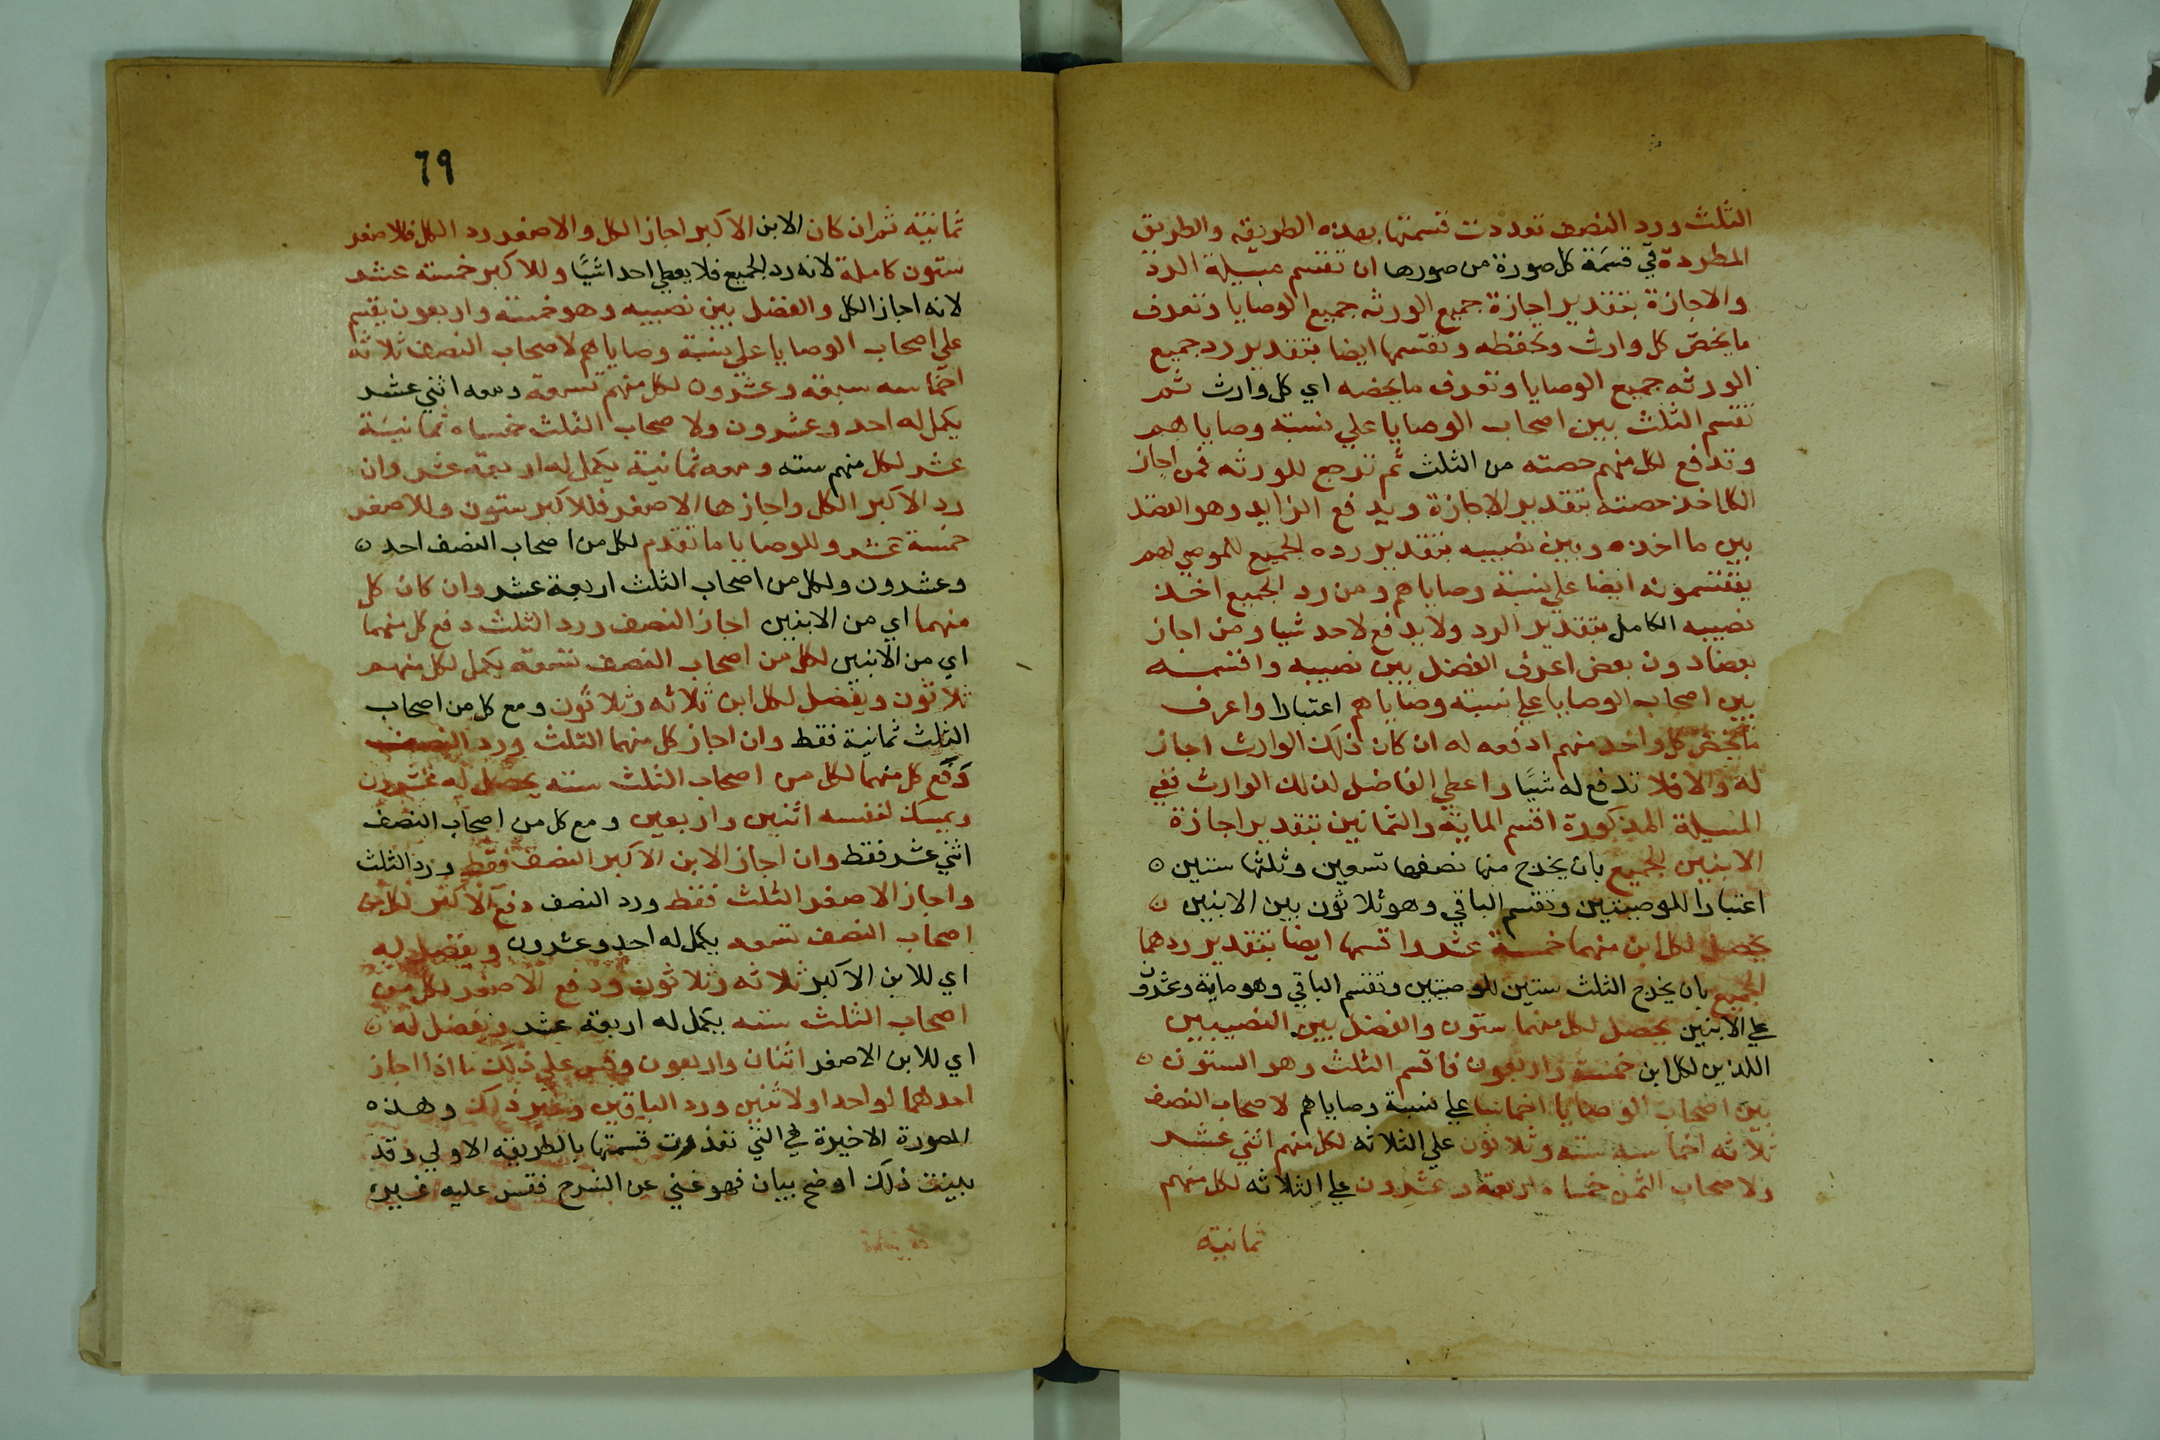 الثلث ورد النصف تعددت قسمتها بهذه الطريقه والطريق
المطردة في قسمَة كل صورة من صورها ان تقسم مسيلة الرد
والاجازة بتقدير اجازة جميع الورثه جميع الوصايا وتعرف
ما يخصّ كل وارث وتحفظه وتقسمها ايضا بتقدير رد جميع
الورثه جميع الوصايا وتعرف ما يخصه اي كل وارث ثم
تقسم الثلث بين اصحاب الوصايا علي نسبة وصاياهم
وتدافع لكل منهم حصته من الثلث ثم ترجع للورثه فمن اجاز
الكل اخذ حصته بتقدير الاجازة ويدفع الزايد وهو الفضل
بين ما اخذه وبين نصيبه بتقدير رده الجميع للموصي لهم
يقتسمونه ايضا علي نسبة وصاياهم ومن رد الجميع اخذ
نصيبه الكامل بتقدير الرد ولا يدفع لاحد شيا ومن اجاز
بعضا دون بعض اعرف الفضل بين نصيبه واقسمه
بين اصحاب الوصايا علي نسبة وصاياهم اعتبارا واعرف
ما يخص كل واحد منهم ادفعه له ان كان ذلك الوارث اجاز
له والا فلا تدفع له شيَا واعطي الفاضل لذلك الوارث ففي
المسيلة المذكورة اقسم الماية والثمانين بتقدير اجازة
الابنين الجميع بان يخرج منها نصفها تسعين وثلثها ستين ه
اعتبارا للموصيتين وتقسم الباقي وهو ثلاثون بين الابنين ه
يحصل لكل ابن منهما خمسة عشر واقسمها ايضا بتقدير ردهما
الجميع بان يخرج الثلث ستين للوصيتين وتقسم الباقي وهو ماية وعشرون
علي الابنين يحصل لكل منهما ستون والفضل بين النصيبين
اللذين لكل ابن خمسة واربعون فاقسم الثلث وهو الستون ه
بين اصحاب الوصايا اخماسا علي نسبة وصاياهم لاصحاب النصف
ثلاثه اخماسه ستة وثلاثون علي الثلاثه لكل منهم اثني عشر
ولاصحاب الثمن خمساه اربعة وعشرون علي الثلاثه لكل منهم
ثمانية
٦٩
ثمانية ثم ان كان الابن الاكبر اجاز الكل والاصغر رد الكل فللاصغر
ستون كاملة لانه رد الجميع فلا يعطي احدا شيًا وللاكبر خمسة عشر
لانه اجاز الكل والفضل بين نصيبيه وهو خمسة واربعون يقسم
علي اصحاب الوصايا علي نسبة وصاياهم لاصحاب النصف ثلاثة
اخماسه سبعة وعشرون لكل منهم تسعة ومعه اثني عشر
يكمل له احد وعشرون ولاصحاب الثلث خمساه ثمانيَة
عشر لكل منهم سته ومعه ثمانية يكمل له اربعة عشر وان
رد الاكبر الكل واجازها الاصغر فللاكبر ستون وللاصغر
خمسة عشر وللوصايا ما تقدم لكل من اصحاب النصف احد ه
وعشرون ولكل من اصحاب الثلث اربعة عشر وان كان كل
منهما اي من الابنين اجاز النصف ورد الثلث دفع كل منهما
اي من الابنين لكل من اصحاب النصف تسعة يكمل لكل منهم
ثلاثون ويفضل لكل ابن ثلاثه وثلاثون ومع كل من اصحاب
الثلث ثمانية فقط وان اجاز كل منهما الثلث ورد النصف
دفع كل منهما لكل من اصحاب الثلث سته يحصل له عشرون
ويمسك لنفسه اثنين واربعين ومع كل من اصحاب النصف
اثني عشر فقط وان اجاز الابن الاكبر النصف فقط ورد الثلث
واجاز الاصغر الثلث فقط ورد النصف دفع الاكبر لكل من
اصحاب النصف تسعه يكمل له احد وعشرون ويفضل له
اي للابن الاكبر ثلاثه وثلاثون ودفع الاصغر لكل من
اصحاب الثلث سته يكمل له اربعة عشر ويفضل له ه
اي للابن الاصغر اثنان واربعون وقس علي ذلك ما اذا اجاز
احدهما لواحد او لاثنين ورد الباقين وغير ذلك وهذه
الصورة الاخيرة هي التي تعذرت قسمتها بالطريقه الاولي وقد
بينت ذلك اوضح بيان فهو غني عن الشرح فقس عليه غيره